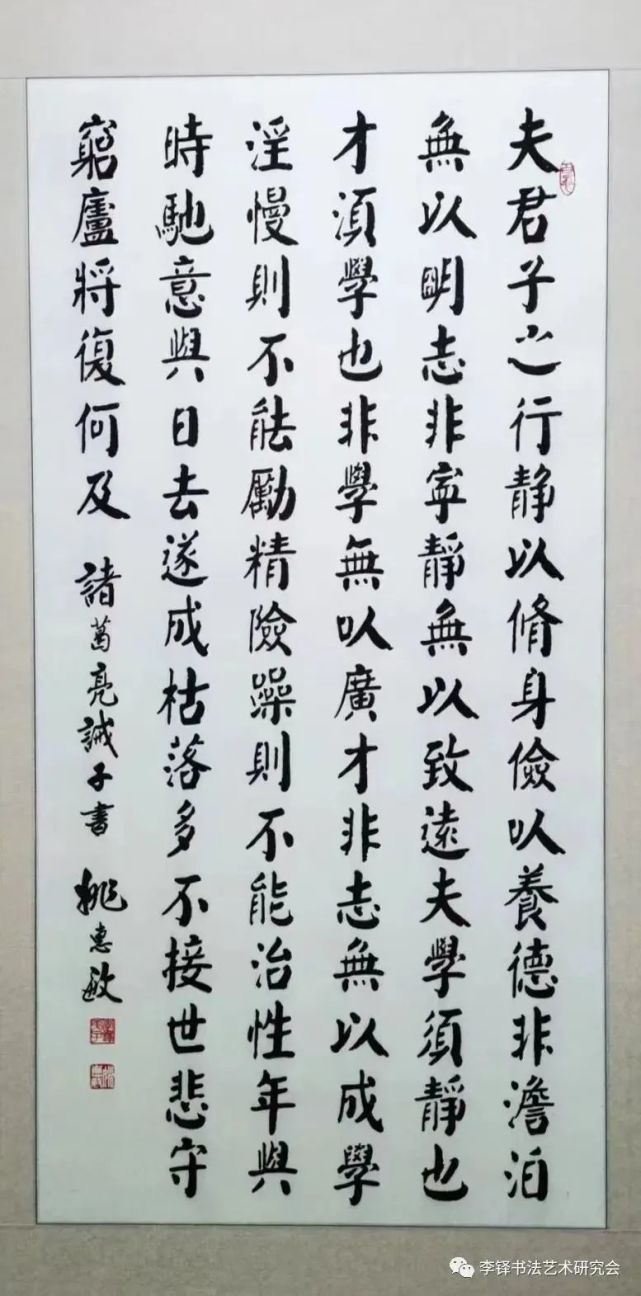 夫君子之行静以脩身儉以養德非澹泊
無以明志非寧靜無以致遠夫學須静也
才須學也非學無以廣才非志無以成學
淫慢則不能勵精險躁則不能治性年與
時馳意與日去遂成枯落多不接世悲守
窮廬將復何及
諸葛亮誡子書
姚惠敏
李铎书法艺术研究会